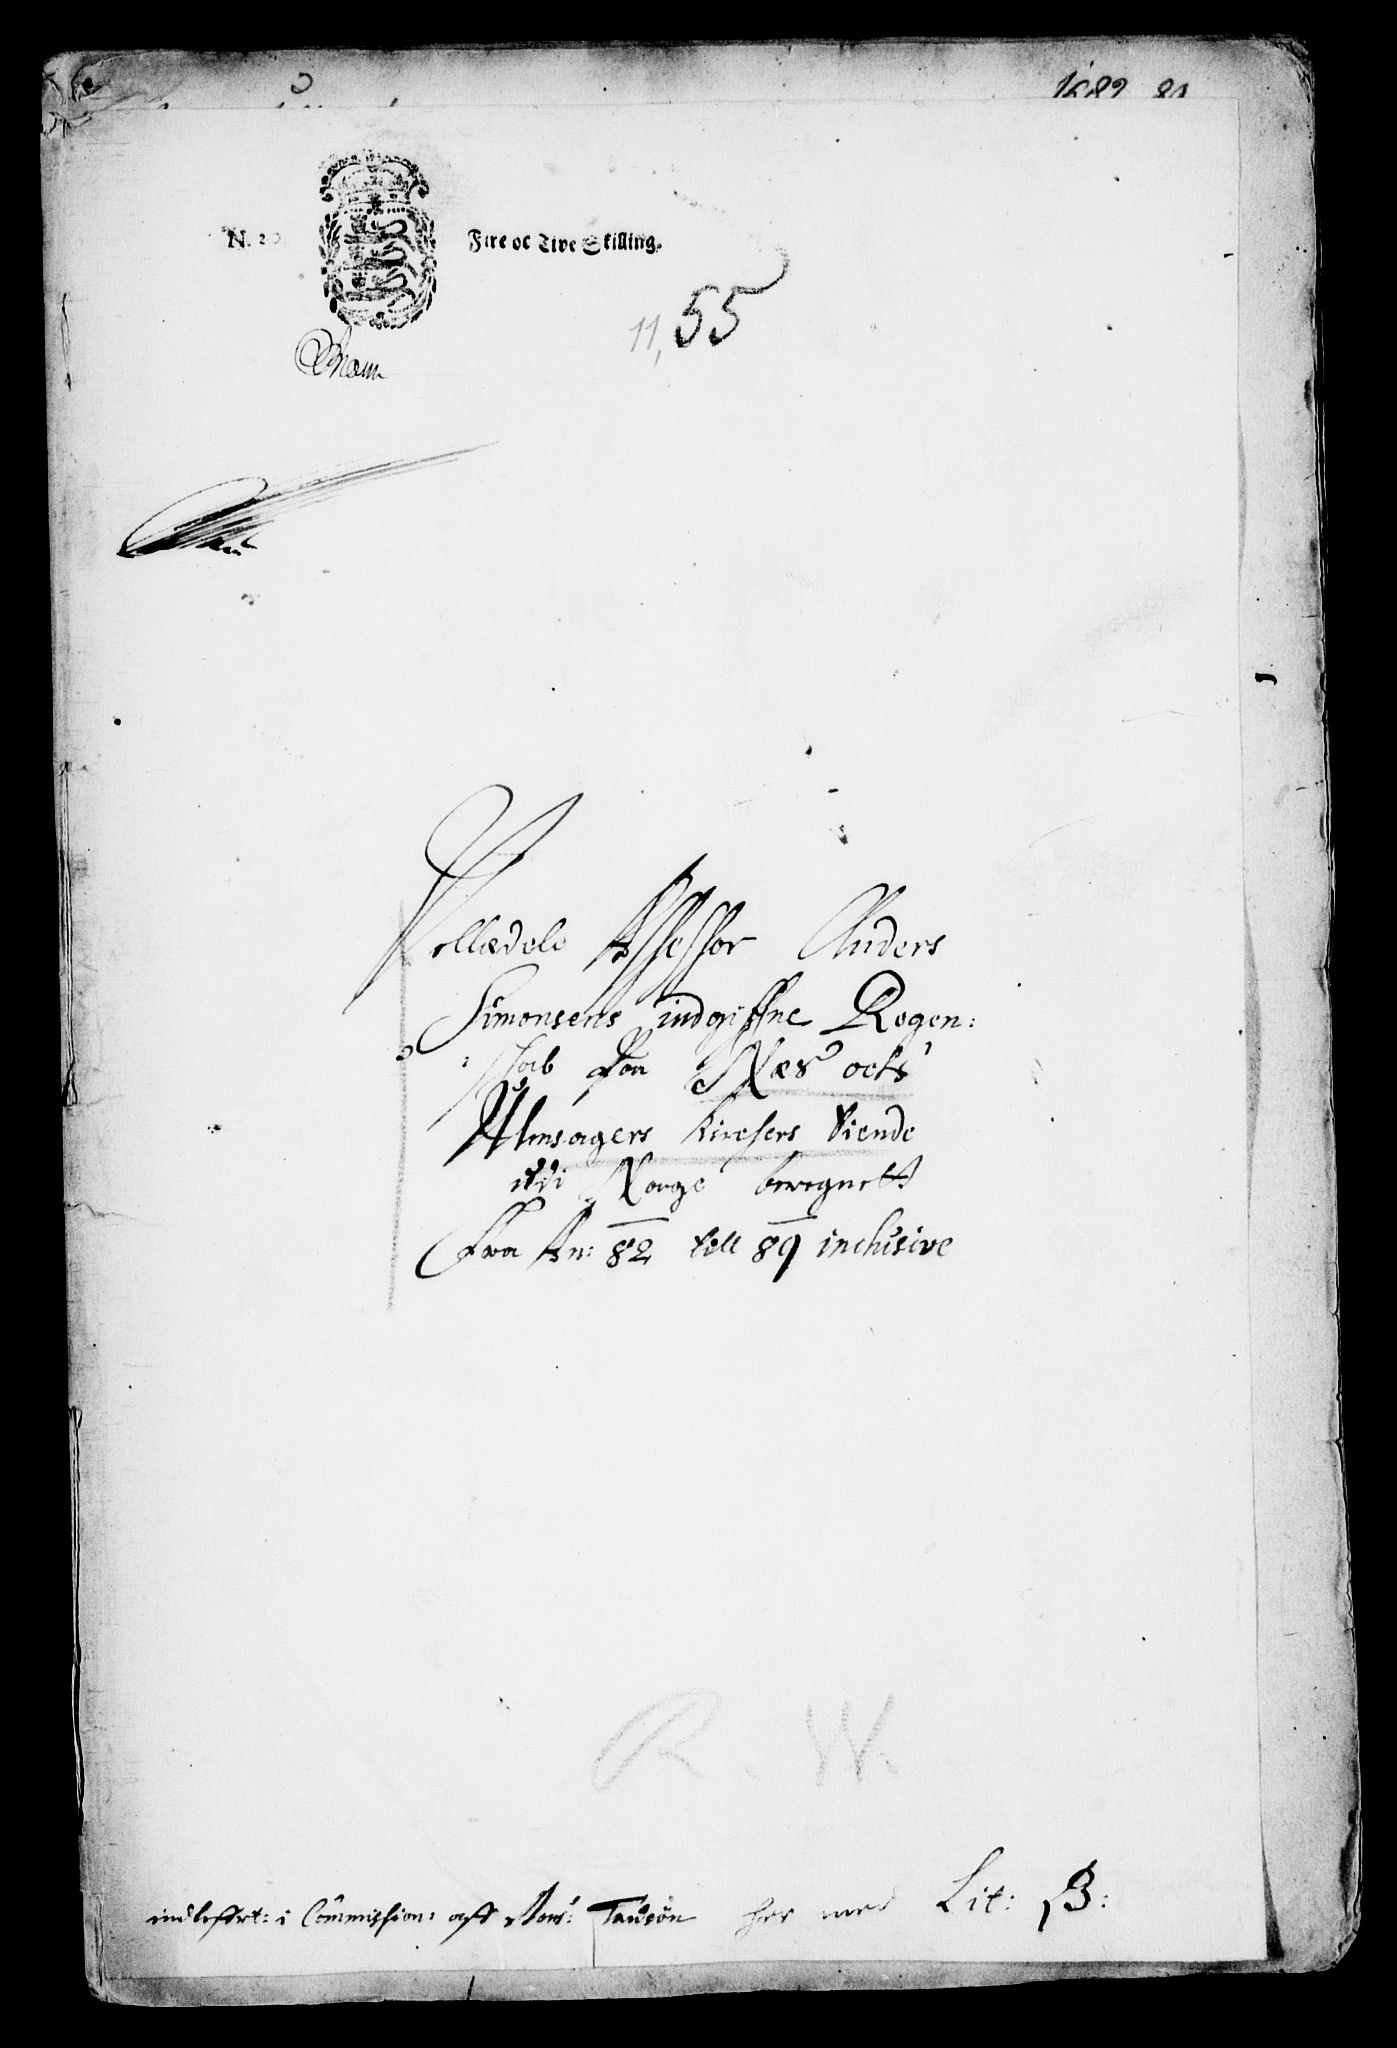 1682 89
N. 20. Fire oc Tive Skilling.
11, 55
Vellædele Assessor Anders
Simonsens indgifne Regen:
: skab for Næs ochs
Almsagers kirchers tiende
udi Norge beregnett
Fra An: 82 till 89 inclusive
R. W.
indlefert: i Commission: aff Mons: Tausøn her med Lit: B: